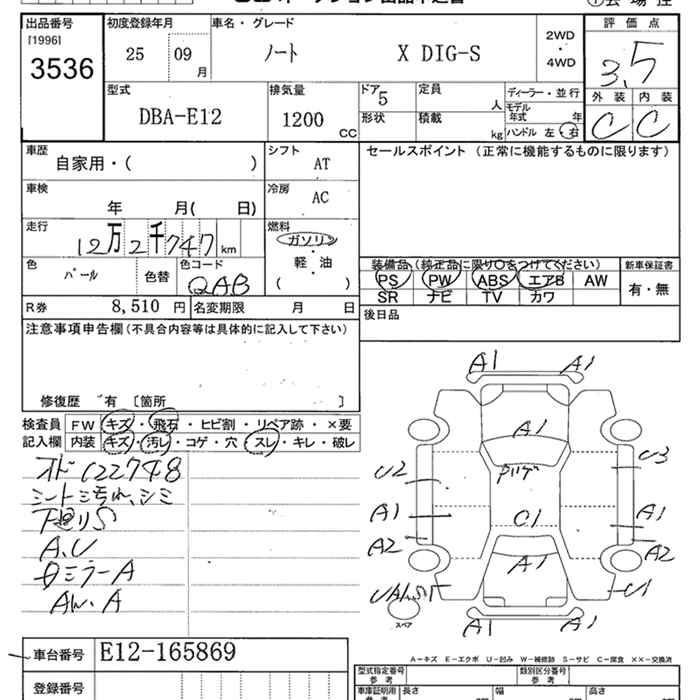 出品番号
[1996]
3536
初度登録年月
25 09
月
車名・グレード
ノート X DIG-S
2WD
・
4WD
評価点
3.5
外装 内装
C C
型式
DBA-E12
排気量
1200
CC
ドア
5
定員
人
形状
積載
kg
ディーラー・並行
モデル
年式 年
ハンドル 左・右
車歴
自家用・( )
シフト
AT
車検
年 月( 日)
冷房
AC
走行
12万2千747
km
燃料
ガソリン
・
軽・油
( )
色
パール
色替
色コード
QAB
R券
8,510 円
名変期限 月 日
セールスポイント (正常に機能するものに限ります)
装備品(純正品に限り○をつけてください)
PS PW ABS エアB AW
SR ナビ TV カワ
新車保証書
有・無
後日品
注意事項申告欄(不具合内容等は具体的に記入して下さい)
修復歴 有 [箇所 ]
検査員
記入欄
FW キズ・飛石・ヒビ割・リペア跡・×要
内装 キズ・汚レ・コゲ・穴・スレ・キレ・破レ
オド122748
シート汚れ、シミ
下廻りS
A,U
ミラーA
AW、A
A1 A1
A1
U2
U3
A1
C1
A1
A2
A2
A1
U1
A1 A1
スペア
A-キズ E-エクボ U-凹み W-補修跡 S-サビ C-腐食 ××-交換済
車台番号
E12-165869
登録番号
型式指定番号
参考
類別区分番号
参考
車庫証明用
参考
長さ 幅 高さ